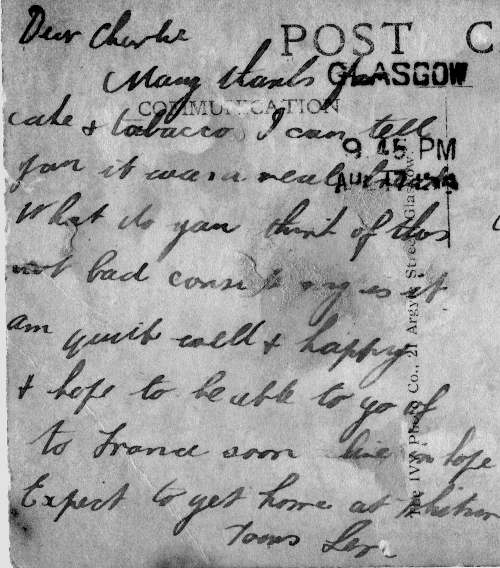 Dear Charlie
POST C
Many thanks for
GLASGOW
COMMUNICATION
cake & tobacco I can tell
9 45 PM
you it was a real
AUG 17
What do you think of this
not bad considering is it
am quite well & happy
& hope to be able to go of
to France soon live in hope
Expect to get home at
Yours Len
The IVY Photo Co., 21 Argyle Street, Glasgow